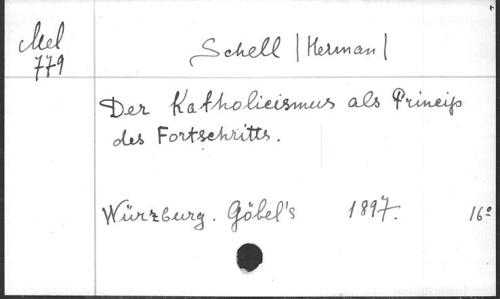 Mel
779
Schell |Herman|
Der Katholicismus als Princip
des Fortschritts.
Würzburg. Göbel's 1897. 16º